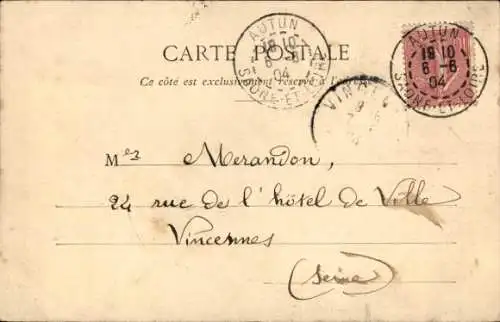 AUTUN
18 10
6 -6
04
SAONE-ET-LOIRE
AUTUN
18 10
6 -6
04
SAONE-ET-LOIRE
CARTE POSTALE
Ce côté est exclusivement réservé à l'adresse
Mes Merandon,
24 rue de l'hôtel de Ville
Vincennes
(Seine)